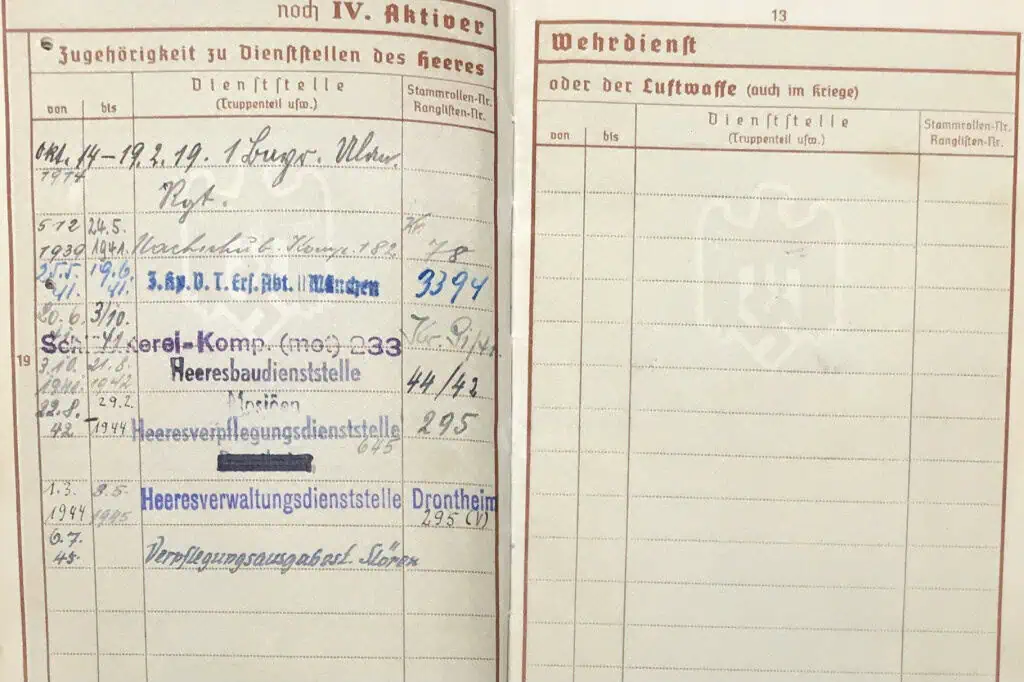 noch IV. Aktiver
Zugehörigkeit zu Dienststellen des Heeres
von
bis
Dienststelle
(Truppenteil usw.)
Stammrollen-Nr.
Ranglisten-Nr.
Okt. 14 – 19.2.19. 1 Bayr. Ulan.
1914
Rgt.
5 12 24.5.
1939 1941. Nachschub. Komp. 182 78
25.5. 19.6.
41. 41. 3. Kp. D. T. Ers. Abt. II München 3394
20.6. 3/10.
erei-Komp. (mot) 233
19
3.10. 21.8. Heeresbaudienststelle
1942 44/42
22.8. 29.2.
42 1944 Heeresverpflegungsdienststelle 295
645
1.3. 8.5. Heeresverwaltungsdienststelle Drontheim
1944 1945 295 (V)
6.7.
45. Verpflegungsausgabest. Stören
13
Wehrdienst
oder der Luftwaffe (auch im Kriege)
von
bis
Dienststelle
(Truppenteil usw.)
Stammrollen-Nr.
Ranglisten-Nr.